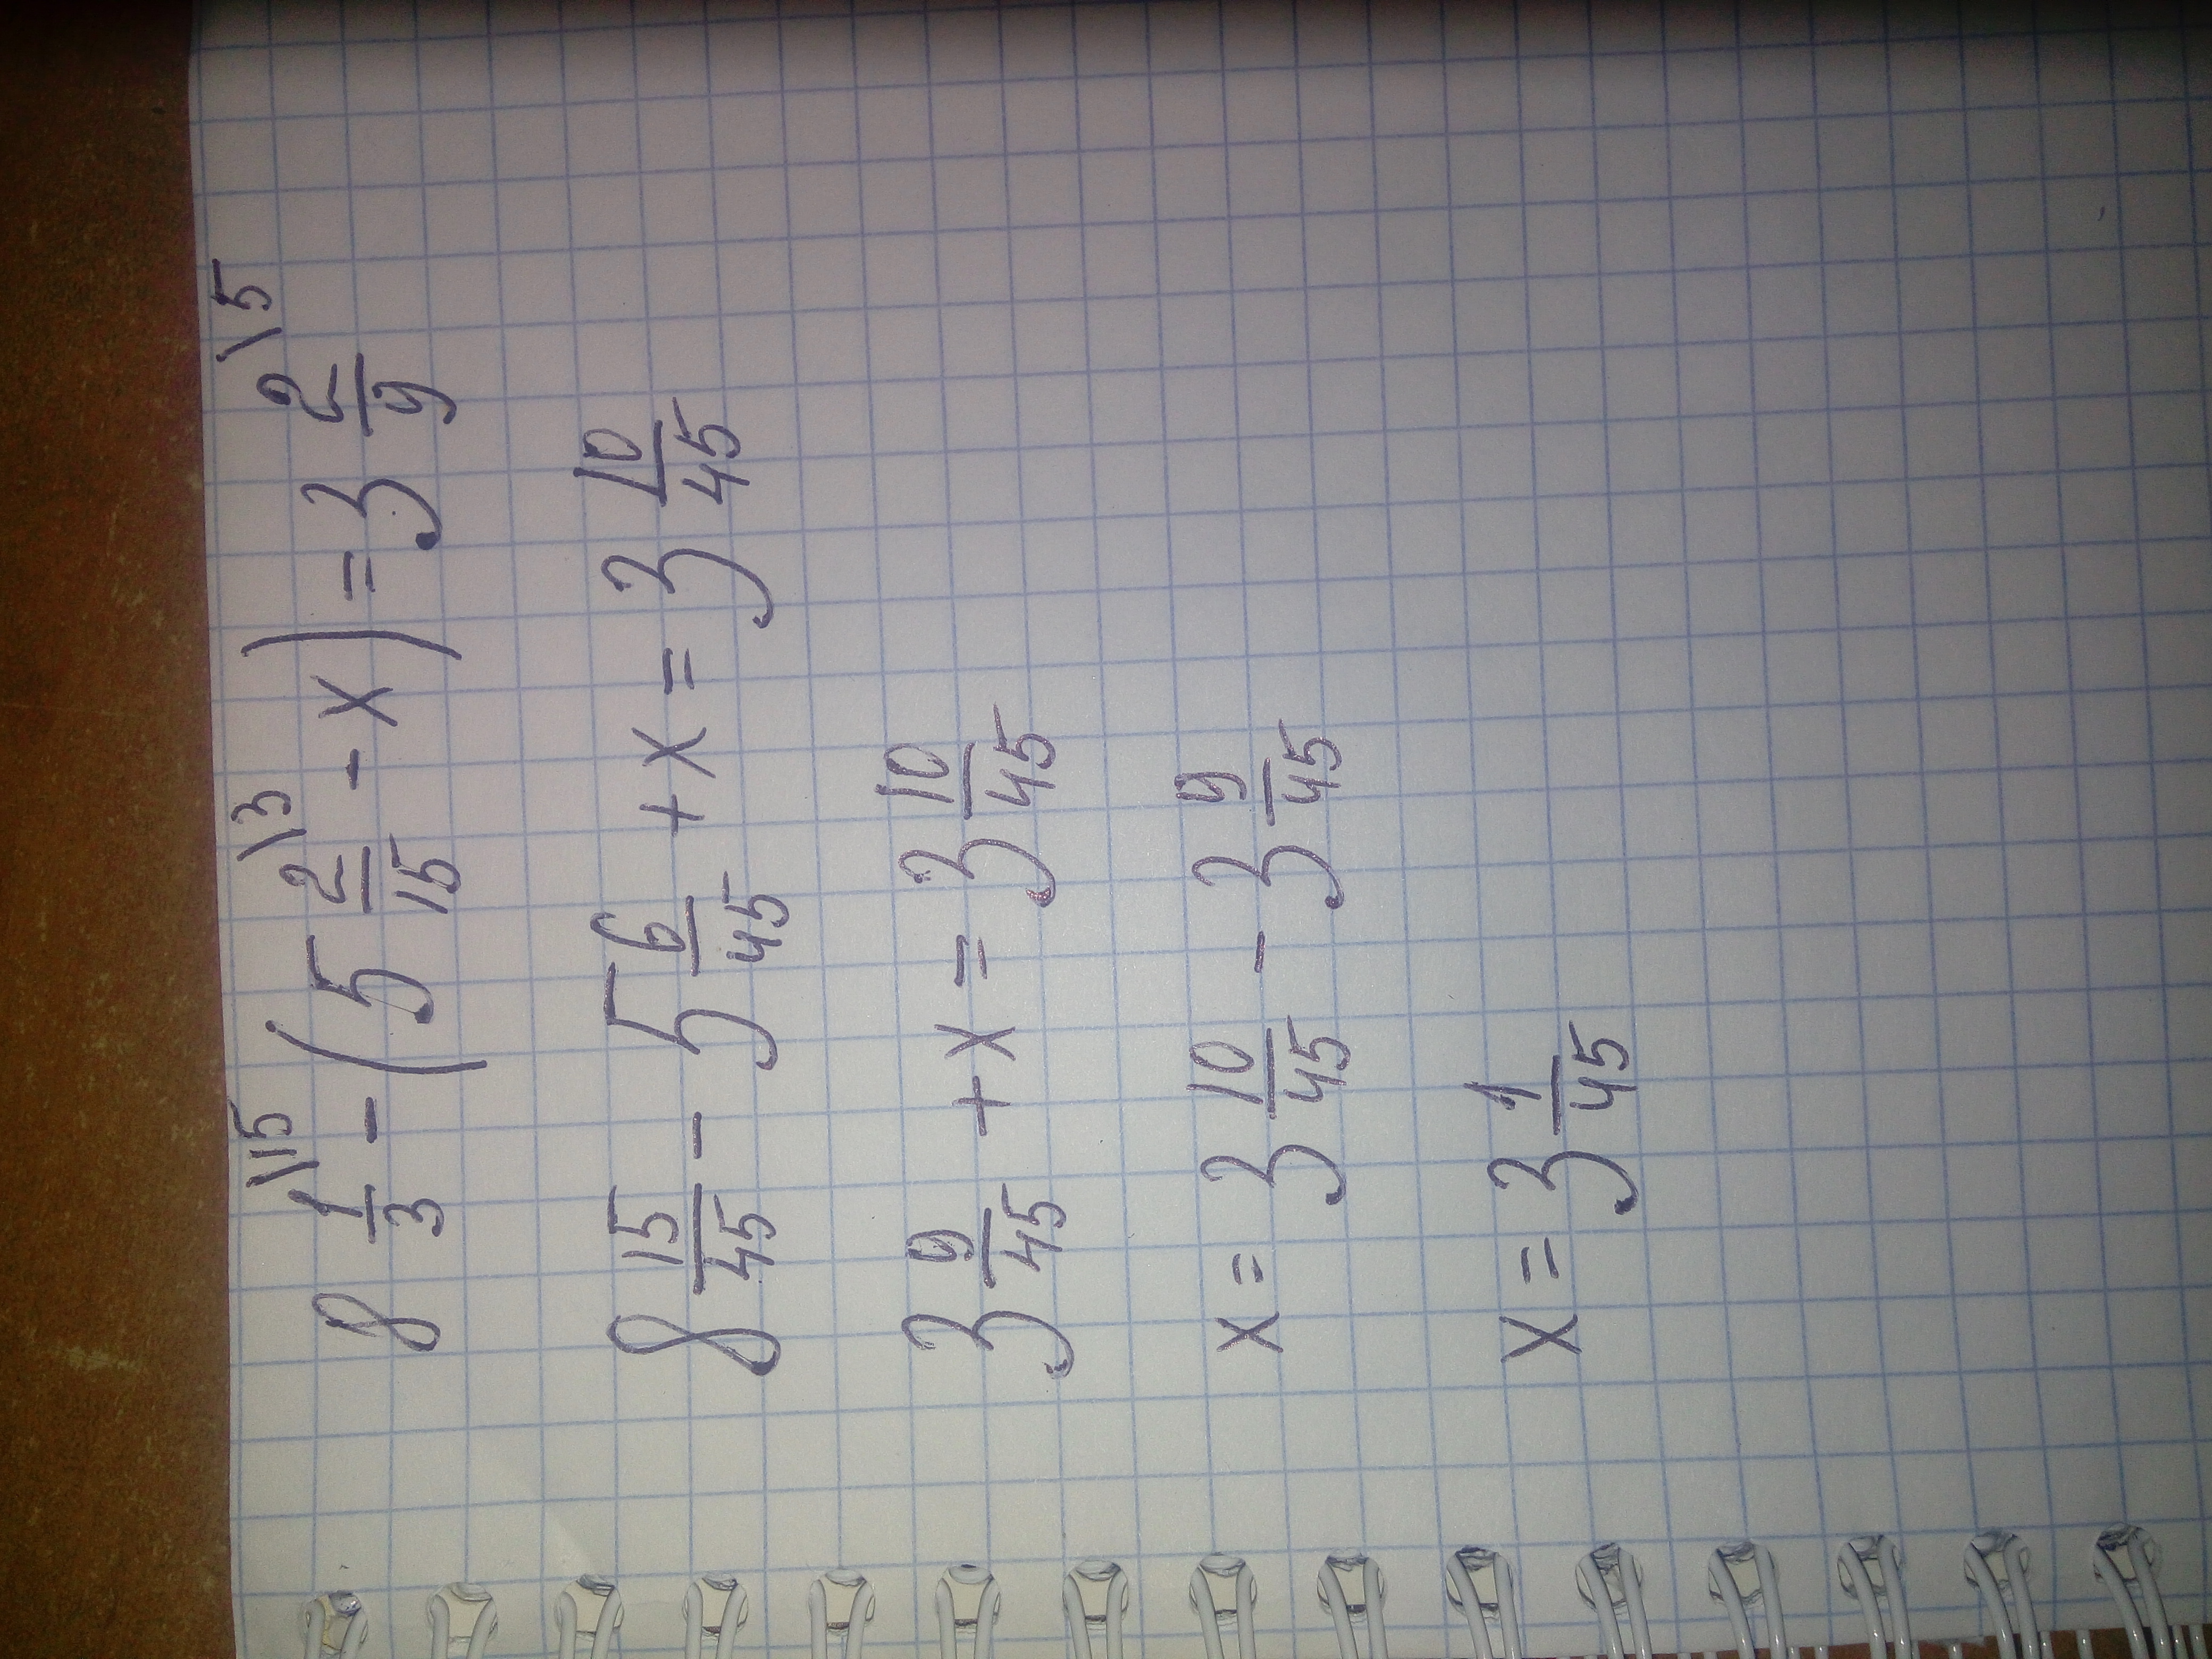 8 1/3 \15 - (5 2/15 \3 - x) = 3 2/9 \5
8 15/45 - 5 6/45 + x = 3 10/45
3 9/45 + x = 3 10/45
x = 3 10/45 - 3 9/45
x = 3 1/45